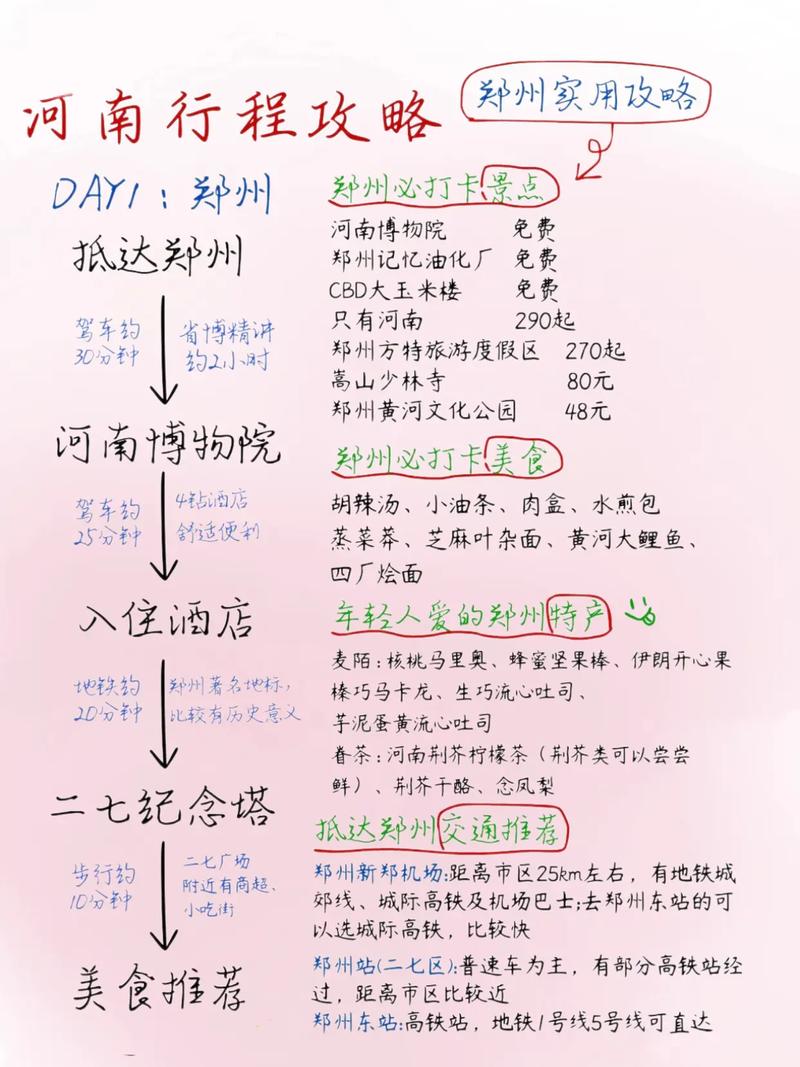 河南行程攻略
郑州实用攻略
DAY1：郑州
抵达郑州
驾车约
30分钟
省博精讲
约2小时
河南博物院
驾车约
25分钟
4钻酒店
舒适便利
入住酒店
地铁约
20分钟
郑州著名地标，
比较有历史意义
二七纪念塔
步行约
10分钟
二七广场
附近有商超、
小吃街
美食推荐
郑州必打卡景点
河南博物院 免费
郑州记忆油化厂 免费
CBD大玉米楼 免费
只有河南 290起
郑州方特旅游度假区 270起
嵩山少林寺 80元
郑州黄河文化公园 48元
郑州必打卡美食
胡辣汤、小油条、肉盒、水煎包
蒸菜莽、芝麻叶杂面、黄河大鲤鱼、
四厂烩面
年轻人爱的郑州特产
麦陌：核桃马里奥、蜂蜜坚果棒、伊朗开心果
榛巧马卡龙、生巧流心吐司、
芋泥蛋黄流心吐司
眷茶：河南荆芥柠檬茶（荆芥类可以尝尝
鲜）、荆芥干酪、念凤梨
抵达郑州交通推荐
郑州新郑机场:距离市区25km左右，有地铁城
郊线、城际高铁及机场巴士;去郑州东站的可
以选城际高铁，比较快
郑州站(二七区):普速车为主，有部分高铁站经
过，距离市区比较近
郑州东站:高铁站，地铁1号线5号线可直达